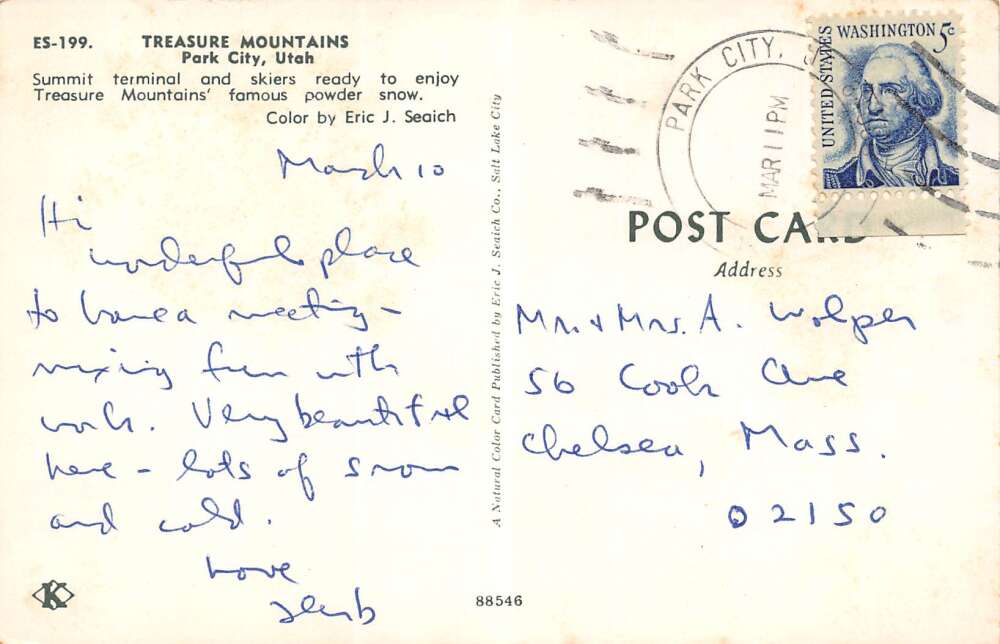 ES-199. TREASURE MOUNTAINS
Park City, Utah
Summit terminal and skiers ready to enjoy
Treasure Mountains' famous powder snow.
Color by Eric J. Seaich
March 10
Hi
wonderful place
to have a meeting -
mixing fun with
work. Very beautiful
here - lots of snow
and cold.
Love
Herb
K
A Natural Color Card Published by Eric J. Seaich Co., Salt Lake City
88546
PARK CITY,
MAR 11 PM
UNITED STATES
WASHINGTON 5c
POST CARD
Address
Mr. + Mrs. A. Wolper
56 Cook Ave
Chelsea, Mass.
02150